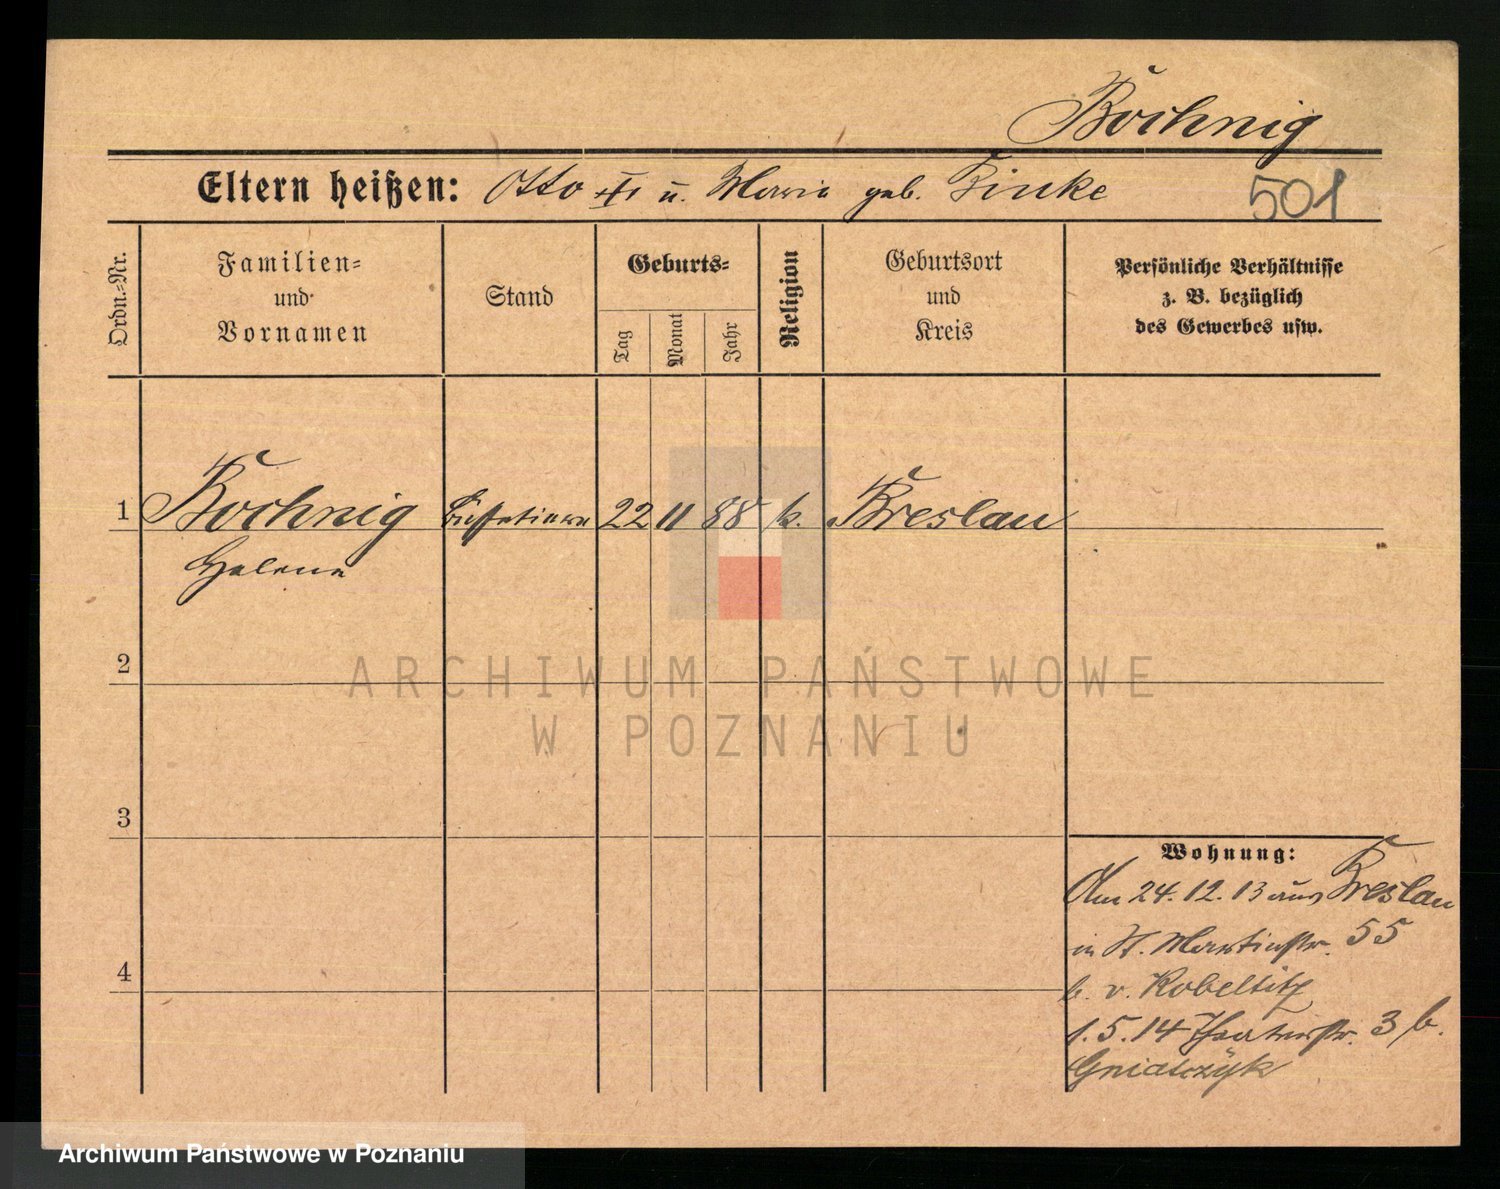 Bochnig
Eltern heißen: Otto u. Maria geb. Finke
501
Ordn.-Nr.
Familien-
und
Vornamen
Stand
Geburts-
Tag
Monat
Jahr
Religion
Geburtsort
und
Kreis
Persönliche Verhältnisse
z. B. bezüglich
des Gewerbes usw.
1 Bochnig Büffetiere 22 11 88 k. Breslau
Helene
2
3
4
Wohnung:
Am 24.12.13 aus Breslau
in St. Martinstr. 55
b. v. Kobeltitz
1.5.14 Theaterstr. 3 b.
Gniatczyk
ARCHIWUM PAŃSTWOWE
W POZNANIU
Archiwum Państwowe w Poznaniu